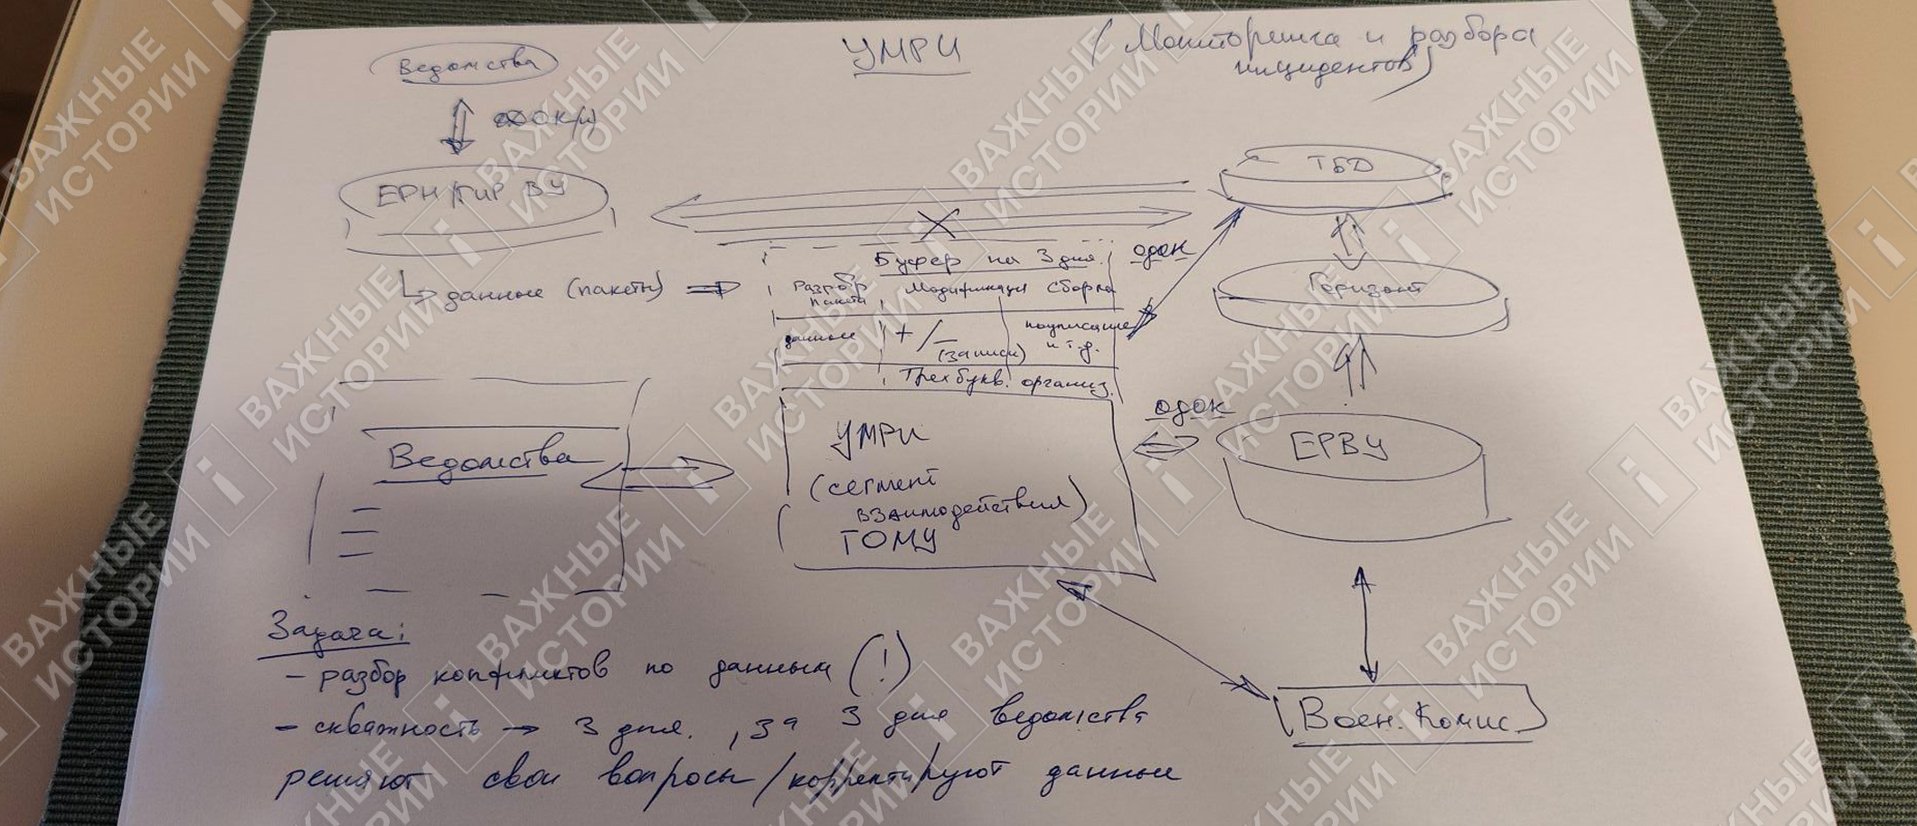 УМРИ
(Мониторинга и разбора
инцидентов)
Ведомства
ЕРН/ГИР ВУ
данные (пакеты)
ТБД
Горизонт
ОДОК
Буфер на 3 дня.
Разбор
пакета
Модификация
сборка
данные
+/-
(записи)
подписание
и т.д.
Трехбукв. организ.
Ведомства
УМРИ
(сегмент
взаимодействия)
ГОМУ
ОДОК
ЕРВУ
Воен. Комис.
Задача:
- разбор конфликтов по данным (!)
- скважность → 3 дня., за 3 дня ведомства
решают свои вопросы/корректируют данные
ВАЖНЫЕ
ИСТОРИИ